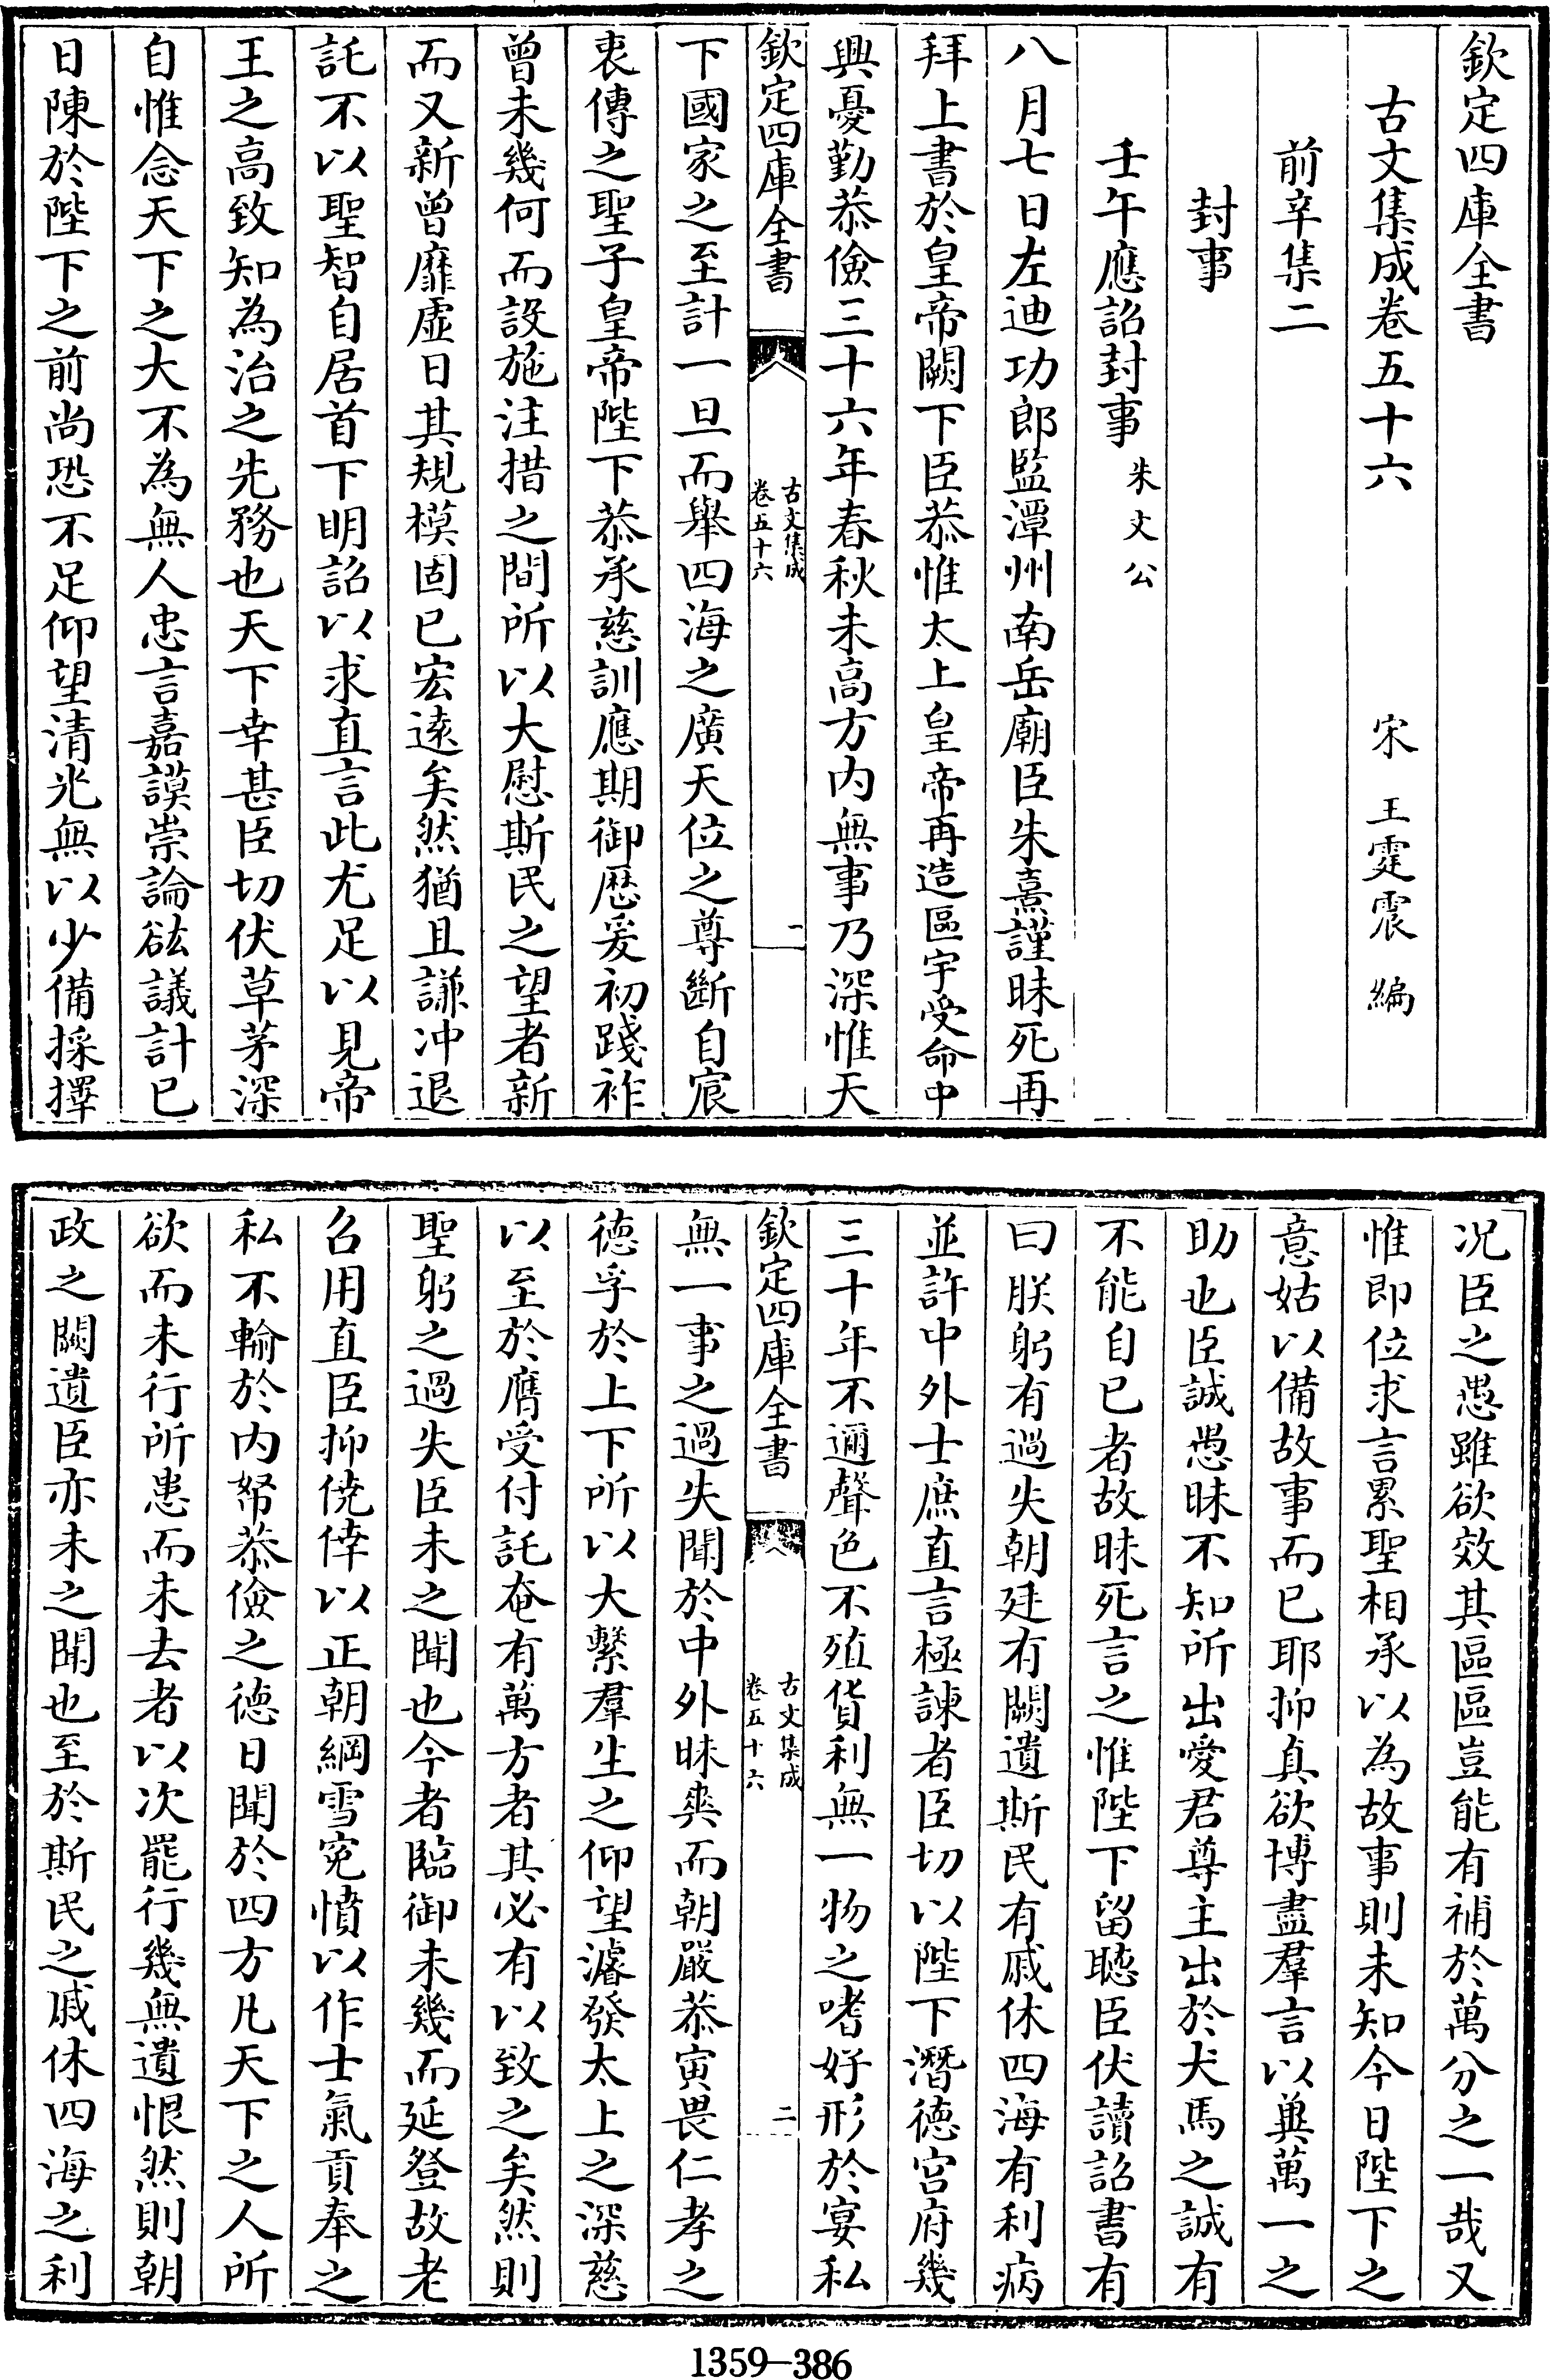 欽定四庫全書
古文集成卷五十六　宋　王霆震　編
前辛集二
封事
壬午應詔封事　朱文公
八月七日左迪功郎監潭州南岳廟臣朱熹謹昧死再
拜上書於皇帝闕下臣恭惟太上皇帝再造區宇受命中
興憂勤恭儉三十六年春秋未高方内無事乃深惟天
欽定四庫全書　古文集成卷五十六　一
下國家之至計一旦而舉四海之廣天位之尊斷自宸
衷傳之聖子皇帝陛下恭承慈訓應期御厯爰初踐祚
曾未幾何而設施注措之間所以大慰斯民之望者新
而又新曾靡虚日其規模固已宏逺矣然猶且謙冲退
託不以聖智自居首下明詔以求直言此尤足以見帝
王之高致知為治之先務也天下幸甚臣切伏草茅深
自惟念天下之大不為無人忠言嘉謨崇論谹議計已
日陳於陛下之前尚恐不足仰望清光無以少備採擇
况臣之愚雖欲效其區區豈能有補於萬分之一哉又
惟即位求言累聖相承以為故事則未知今日陛下之
意姑以備故事而已耶抑真欲博盡羣言以兾萬一之
助也臣誠愚昧不知所出愛君尊主出於犬馬之誠有
不能自已者故昧死言之惟陛下留聽臣伏讀詔書有
曰朕躬有過失朝廷有闕遺斯民有戚休四海有利病
並許中外士庶直言極諫者臣切以陛下潛徳宫府幾
三十年不邇聲色不殖貨利無一物之嗜好形於宴私
欽定四庫全書　古文集成卷五十六　二
無一事之過失聞於中外昧爽而朝嚴恭寅畏仁孝之
徳孚於上下所以大繫羣生之仰望濬發太上之深慈
以至於膺受付託奄有萬方者其必有以致之矣然則
聖躬之過失臣未之聞也今者臨御未幾而延登故老
召用直臣抑僥倖以正朝綱雪寃憤以作士氣貢奉之
私不輸於内帑恭儉之徳日聞於四方凡天下之人所
欲而未行所患而未去者以次罷行幾無遺恨然則朝
政之闕遺臣亦未之聞也至於斯民之戚休四海之利
1359—386